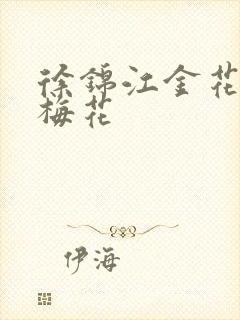 徐锦江金花
梅花
伊海